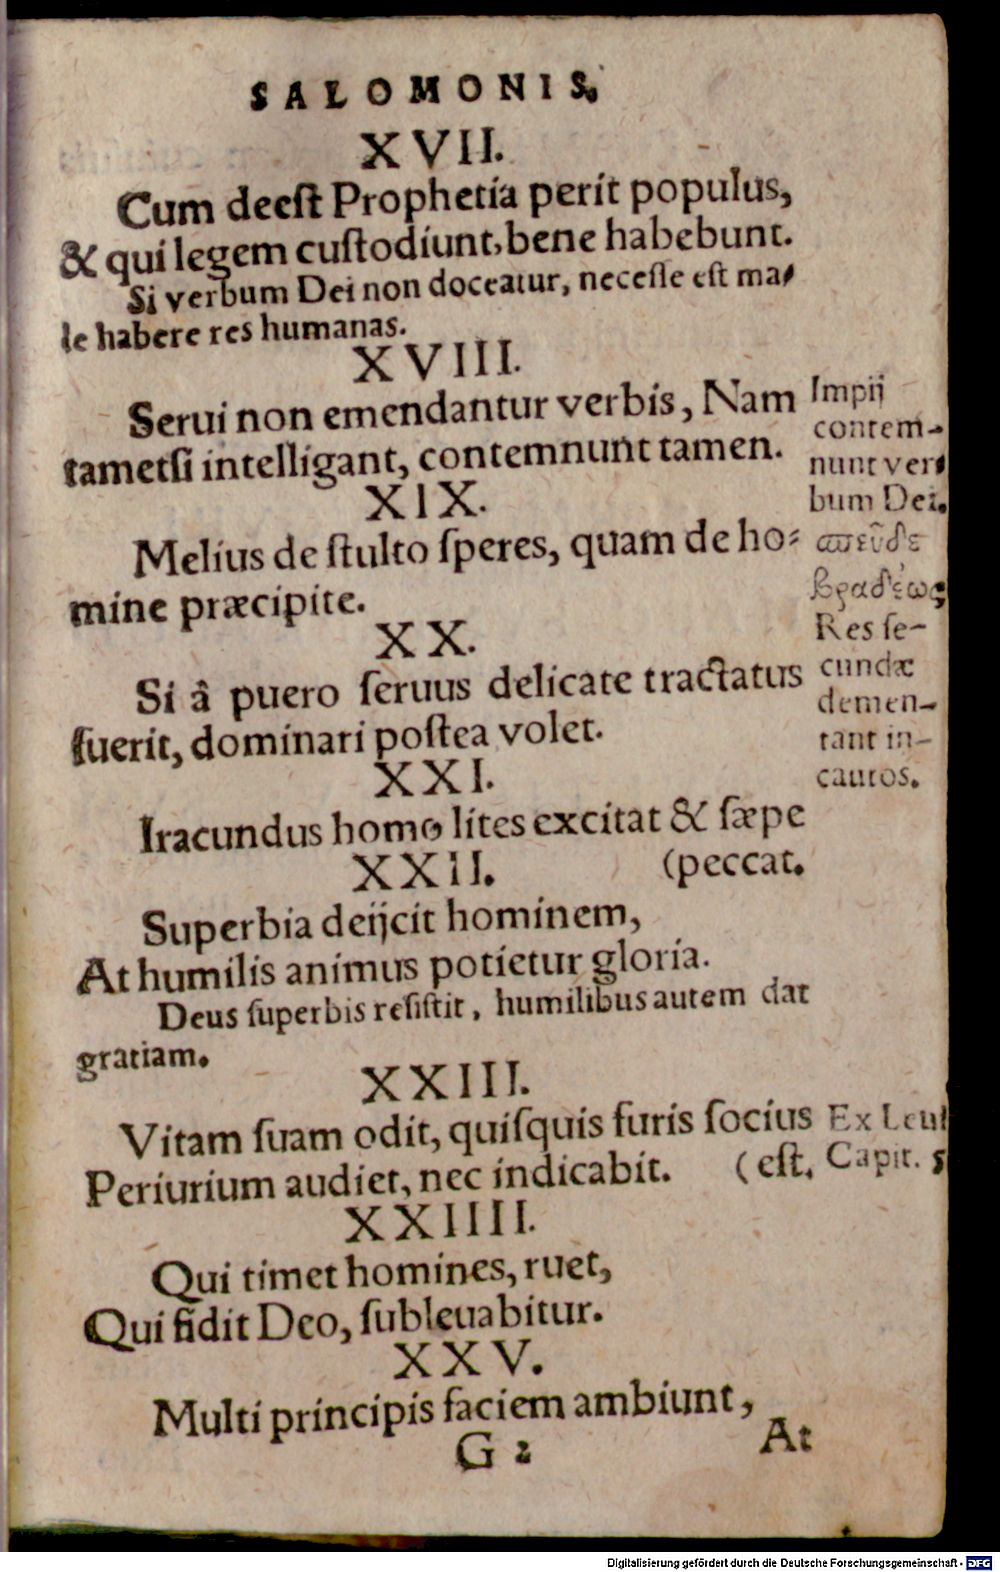 SALOMONIS.
XVII.
Cum deeſt Prophetia perit populus,
& qui legem cuſtodiunt, bene habebunt.
Si verbum Dei non doceatur, neceſſe eſt ma-
le habere res humanas.
XVIII.
Serui non emendantur verbis, Nam
tametſi intelligant, contemnunt tamen.
Impij
contem-
nunt ver-
bum Dei.
XIX.
Melius de ſtulto ſperes, quam de ho-
mine præcipite.
σπεῦδε
βραδέως
XX.
Si â puero ſeruus delicate tractatus
fuerit, dominari poſtea volet.
Res ſe-
cundæ
demen-
tant in-
cautos.
XXI.
Iracundus homo lites excitat & ſæpe
(peccat.
XXII.
Superbia deijcit hominem,
At humilis animus potietur gloria.
Deus ſuperbis reſiſtit, humilibus autem dat
gratiam.
XXIII.
Vitam ſuam odit, quiſquis furis ſocius
(eſt.
Periurium audiet, nec indicabit.
Ex Leui
Capit. 5
XXIIII.
Qui timet homines, ruet,
Qui fidit Deo, ſubleuabitur.
XXV.
Multi principis faciem ambiunt,
G 2
At
Digitalisierung gefördert durch die Deutsche Forschungsgemeinschaft - DFG